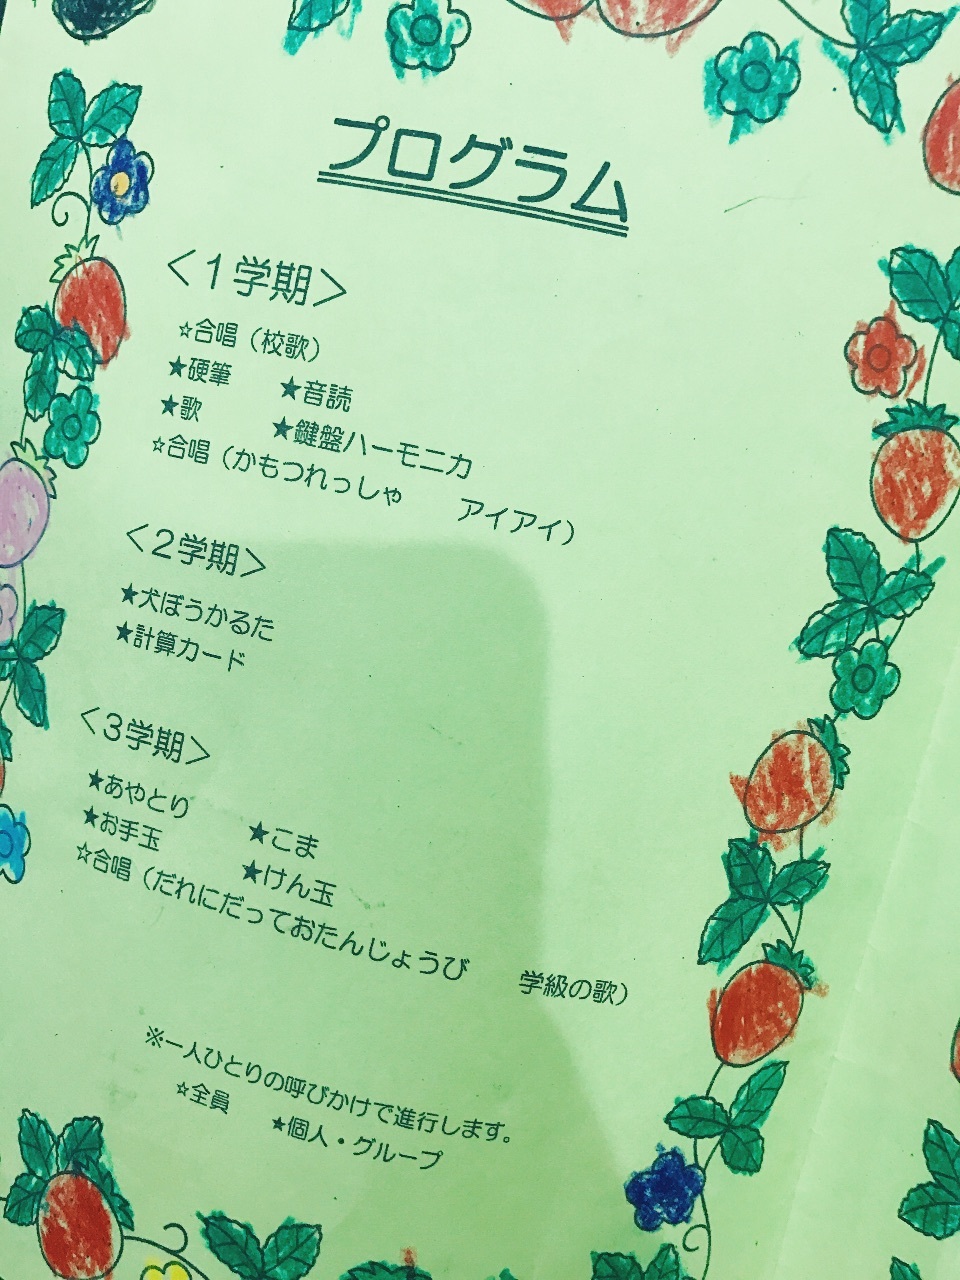 プログラム
＜１学期＞
☆合唱（校歌）
★硬筆　★音読
★歌　★鍵盤ハーモニカ
☆合唱（かもつれっしゃ　アイアイ）
＜２学期＞
★犬ぼうかるた
★計算カード
＜３学期＞
★あやとり　★こま
★お手玉　★けん玉
☆合唱（だれにだっておたんじょうび　学級の歌）
※一人ひとりの呼びかけで進行します。
☆全員　★個人・グループ